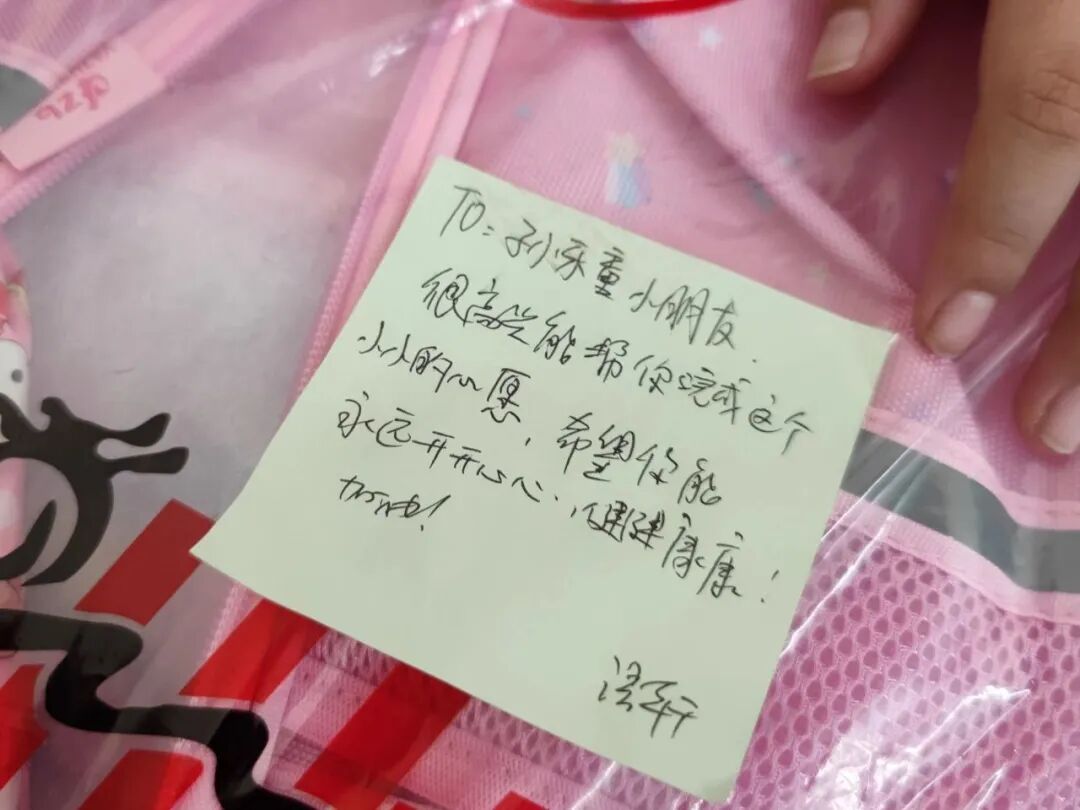 TO：孙乐童小朋友．
很高兴能帮你完成这个
小小的心愿，希望你能
永远开开心心，健健康康！
加油！